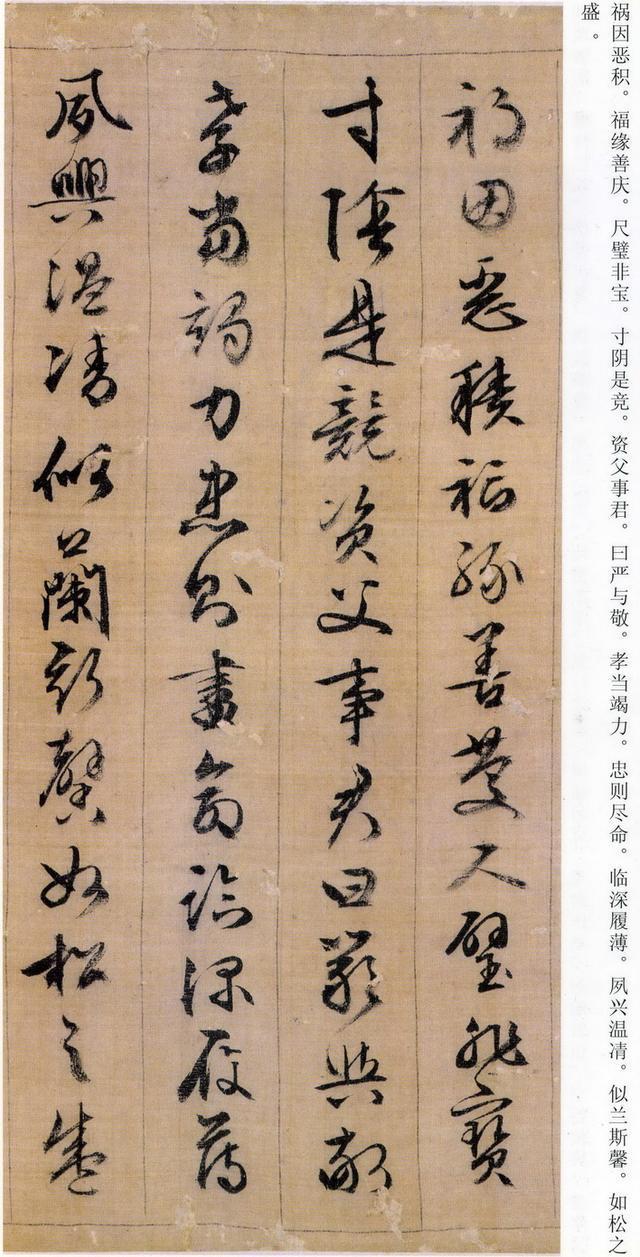 祸因恶积。福缘善庆。尺璧非宝。寸阴是竞。资父事君。曰严与敬。孝当竭力。忠则尽命。临深履薄。夙兴温凊。似兰斯馨。如松之
盛。
禍因惡積福緣善慶尺璧非寶
寸陰是競資父事君曰嚴與敬
孝當竭力忠則盡命臨深履薄
夙興溫凊似蘭斯馨如松之盛